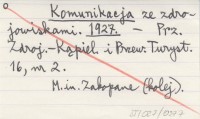 Komunikacja ze zdro-
jowiskami. 1927. — Prz.
Zdroj.-Kąpiel. i Przew. Turyst.
16, nr 2.
M.in. Zakopane (kolej).